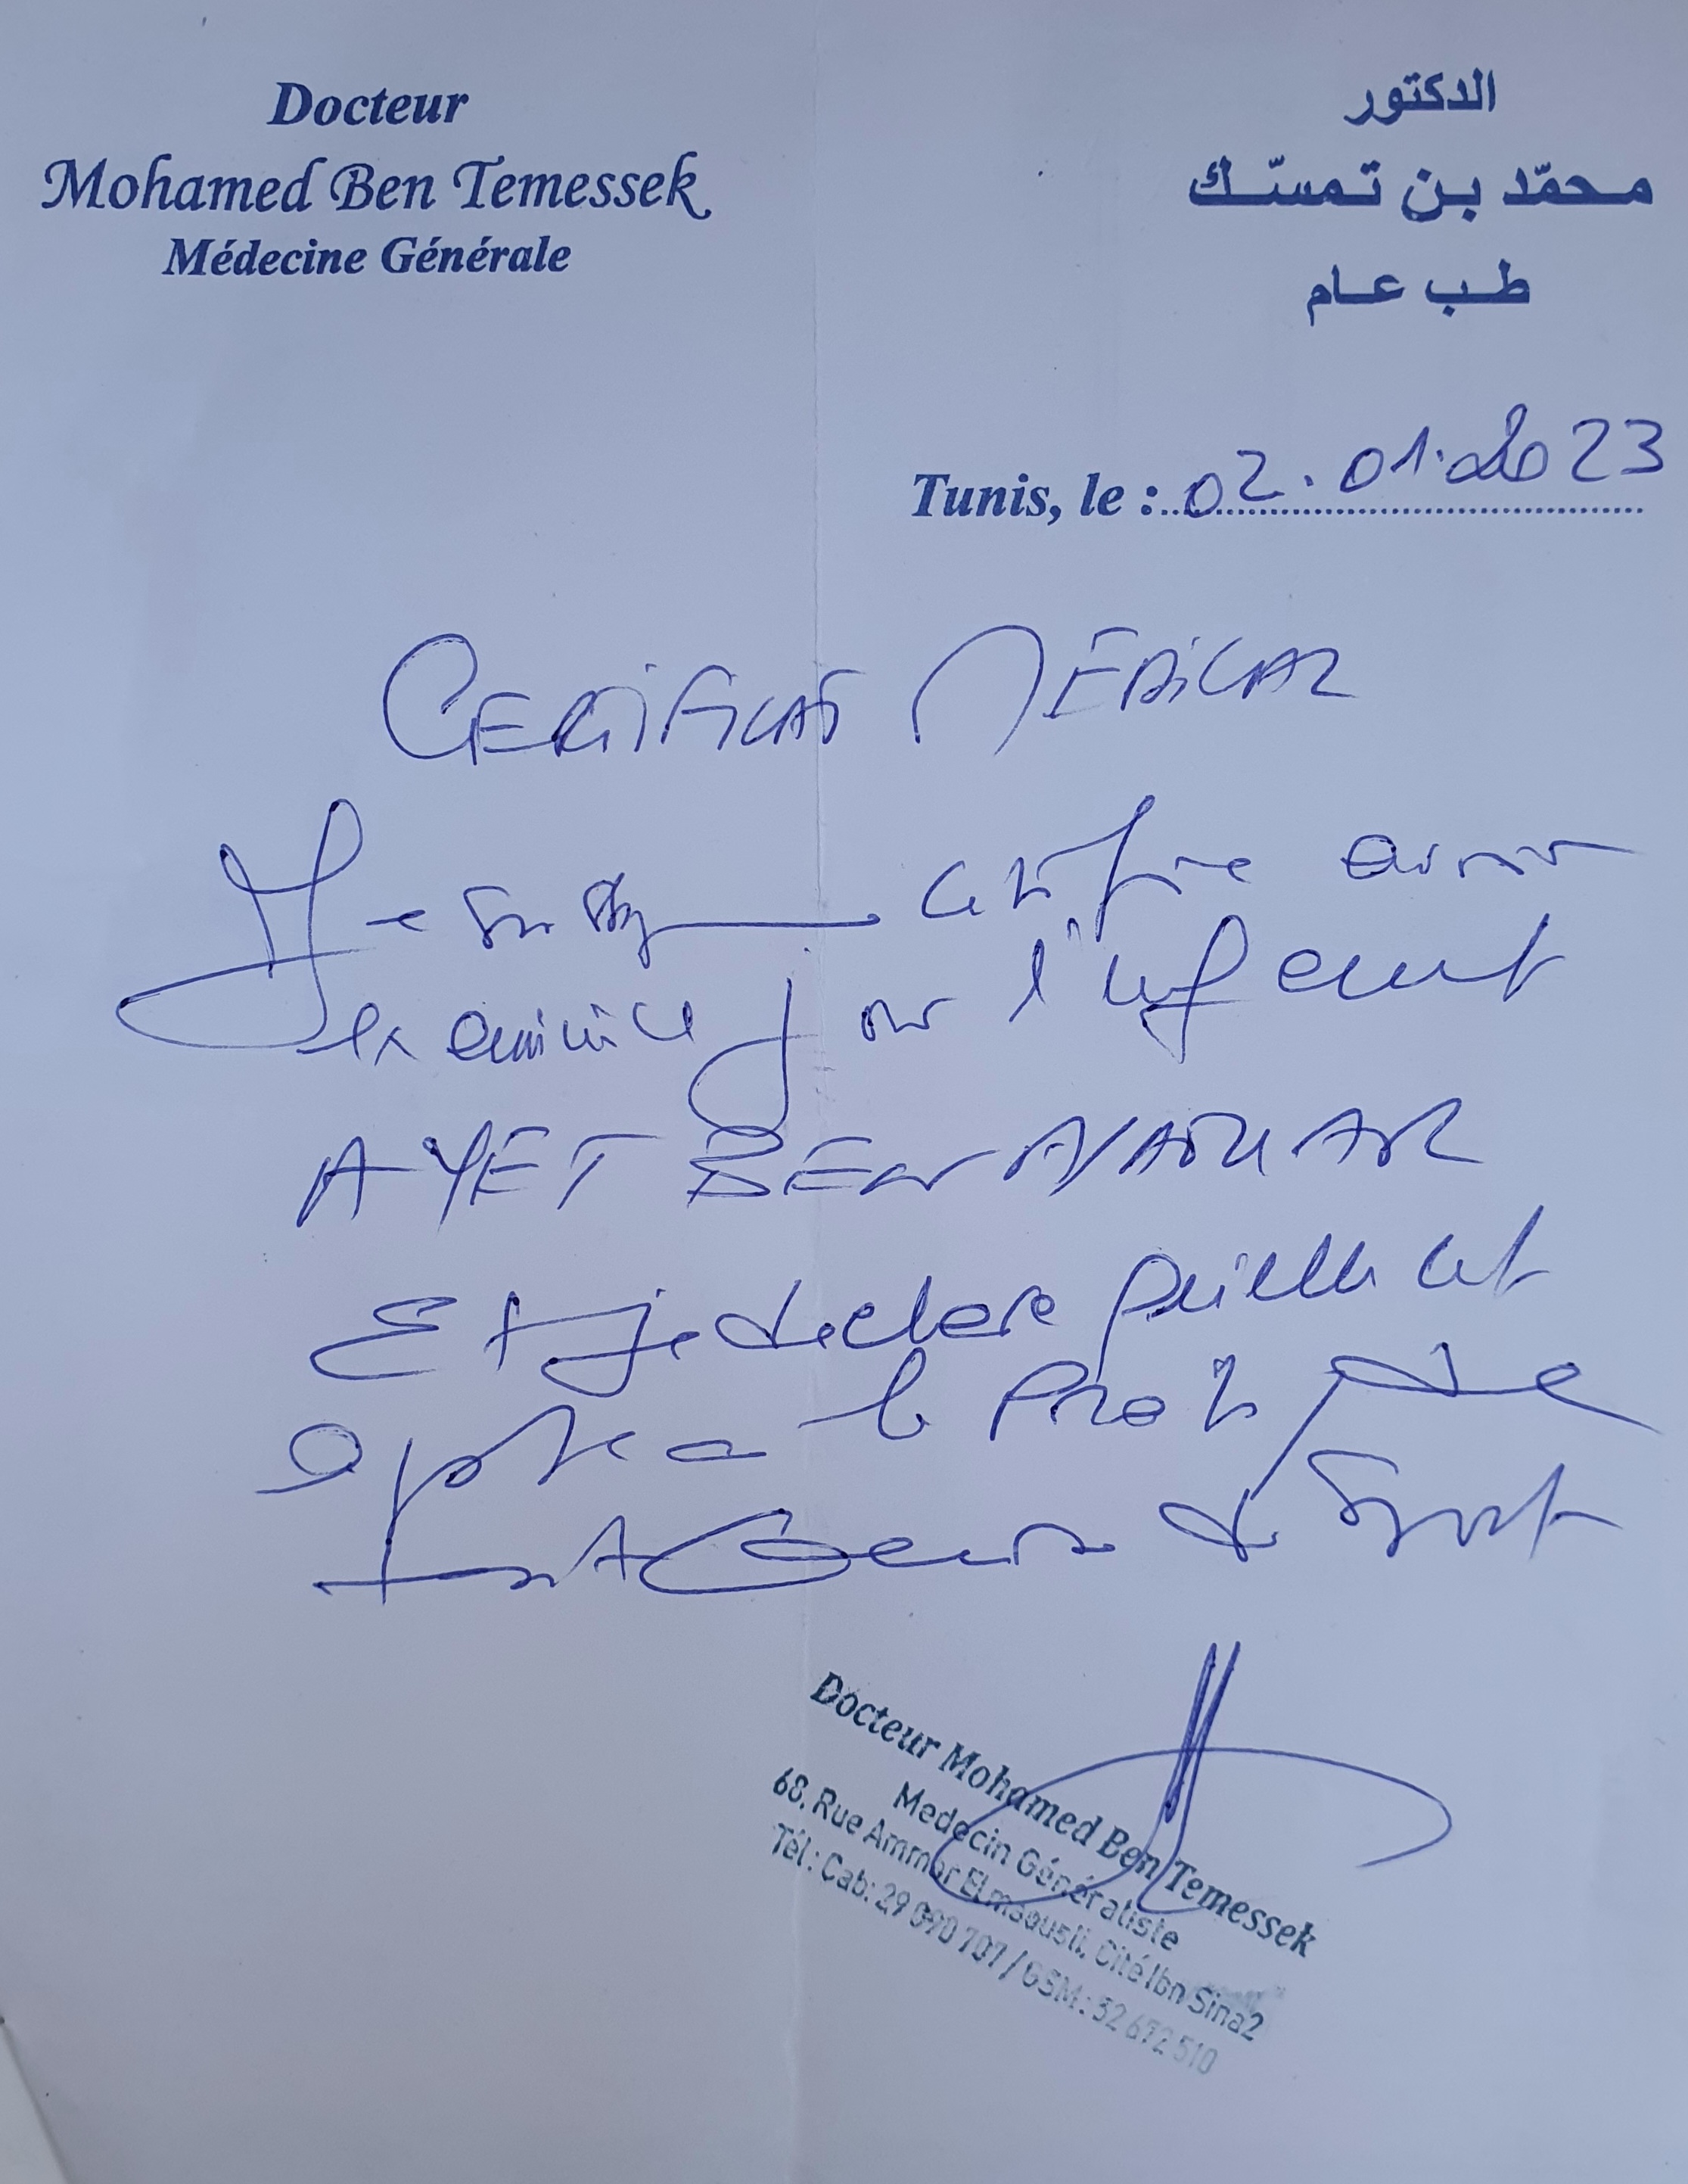 Docteur
Mohamed Ben Temessek
Médecine Générale
الدكتور
محمّد بن تمسّك
طب عام
Tunis, le : 02.01.2023
CERTIFICAT MÉDICAL
Je certifie avoir
examiné ce jour l'enfant
AYET BEN
Et je declare qu'elle est
apte a la pratique de
tout genre de sport
Docteur Mohamed Ben Temessek
Medecin Généraliste
68, Rue Ammar Elmaousli, Cité Ibn Sina2
Tél : Cab: 29 090 707 / GSM : 52 672 510